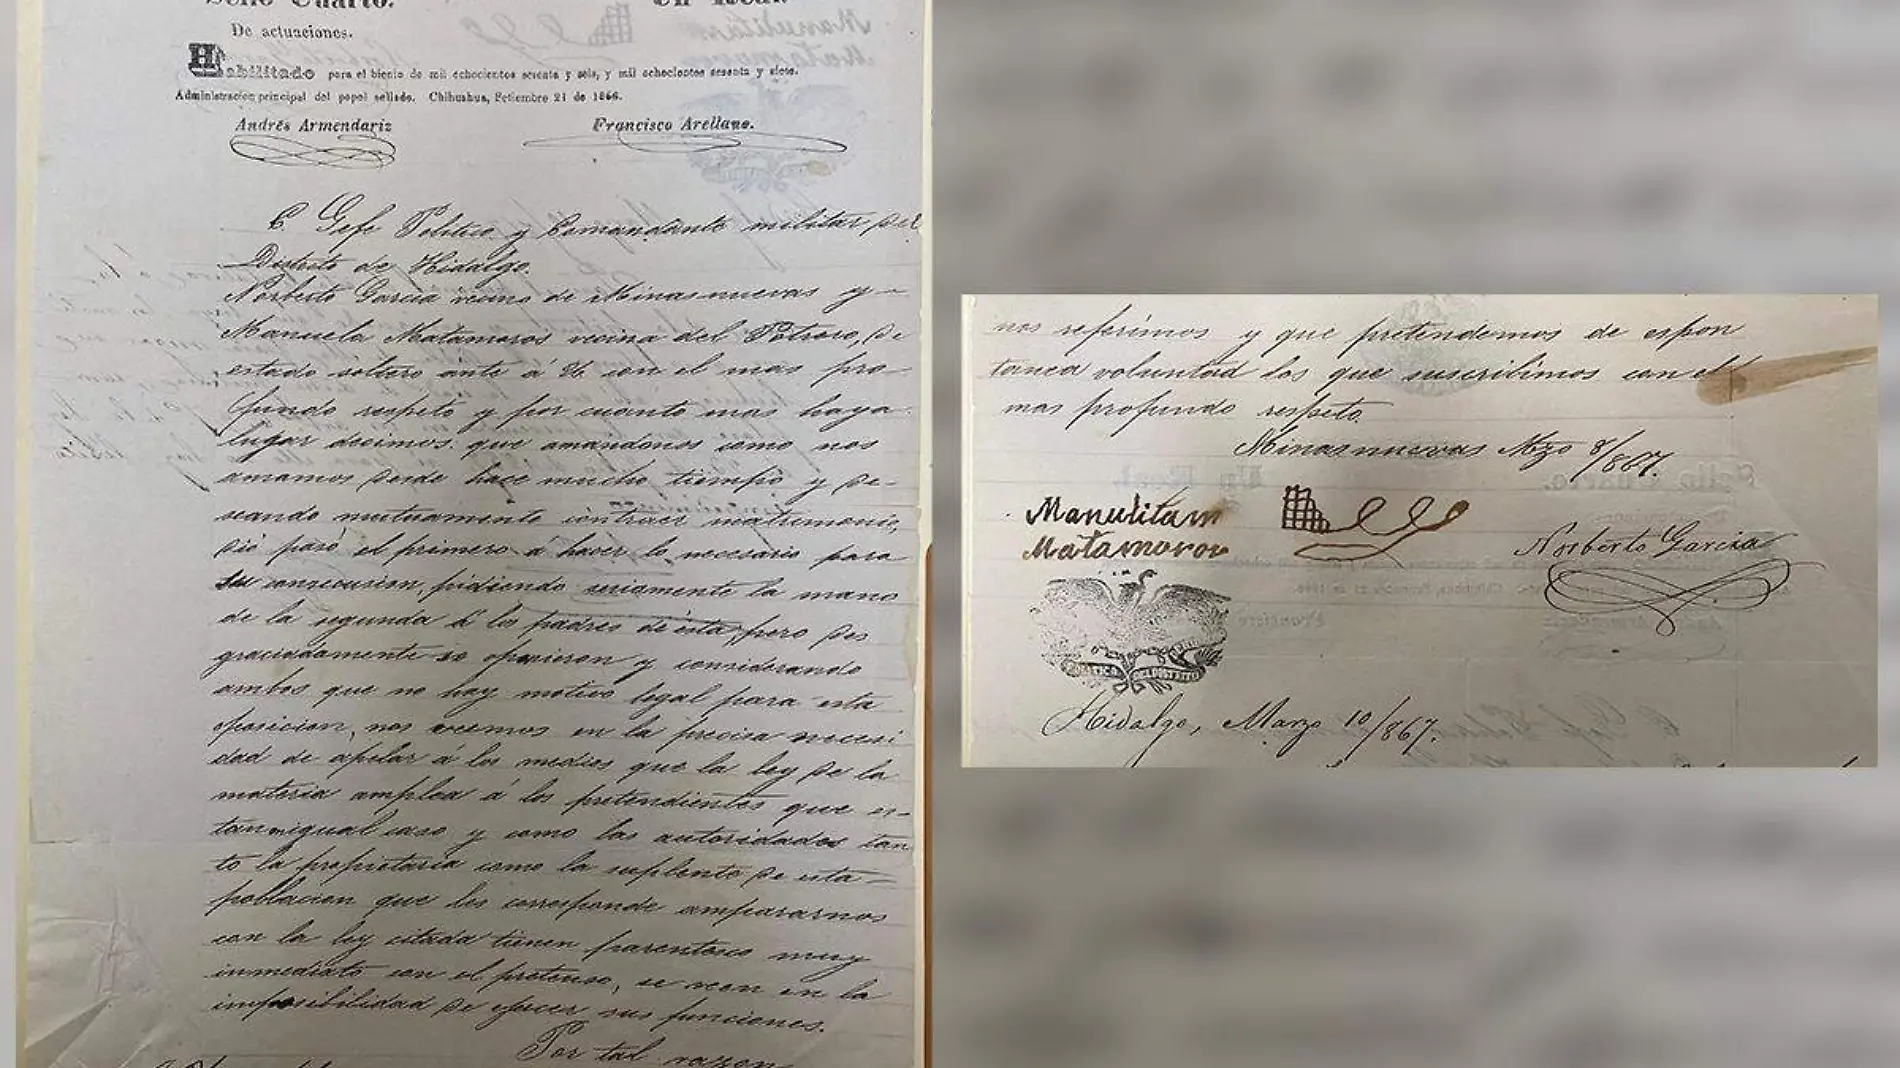 Sello Cuarto. Un Real.
De actuaciones.
Habilitado para el bienio de mil ochocientos sesenta y seis, y mil ochocientos sesenta y siete.
Administracion principal del papel sellado. Chihuahua, Setiembre 21 de 1866.
Andrés Armendariz Francisco Arellano.
C. Gefe Politico y Comandante militar del
Distrito de Hidalgo.
Norberto Garcia vecino de Minasnuevas y
Manuela Matamoros vecina del Potrero, de
estado soltero ante á V. con el mas pro
fundo respeto y por cuanto mas haya
lugar decimos: que amandonos como nos
amamos desde hace mucho tiempo y de-
seando mutuamente contraer matrimonio,
dió pasó el primero á hacer lo necesario para
su consecusion, pidiendo seriamente la mano
de la segunda á los padres de esta, pero des
graciadamente se opusieron y considerando
ambos que no hay motivo legal para esta
oposicion, nos vemos en la precisa necesi
dad de apelar á los medios que la ley de la
materia amplea á los pretendientes que es-
tan igual caso y como las autoridades tan
to la propietaria como la suplente de esta
poblacion que les corresponde ampararnos
con la ley citada tienen parentesco muy
inmediato con el pretenso, se vean en la
imposibilidad de ejercer sus funciones.
Por tal razon
nos referimos y que pretendemos de espon
tanea voluntad los que suscribimos con el
mas profundo respeto.
Minasnuevas Mzo 8/867.
Manulitam
Matamoros
Norberto Garcia
POLITICA DEL DISTRITO
Hidalgo, Marzo 10/867.